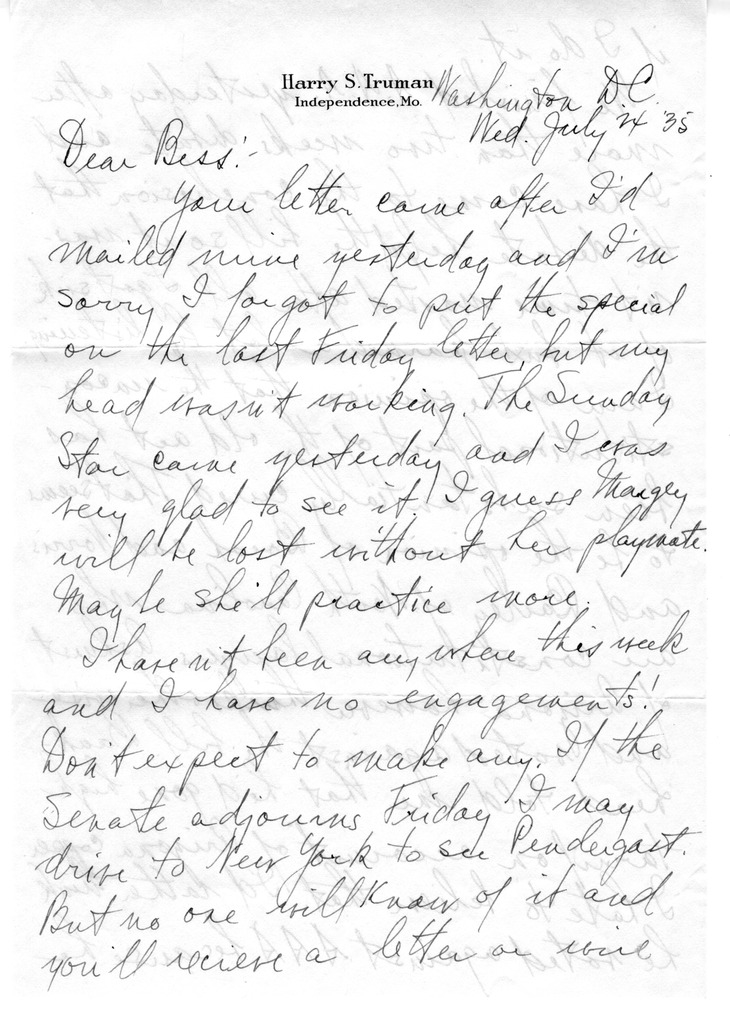 Harry S. Truman
Independence, Mo.
Washington D.C.
Wed. July 24 '35
Dear Bess:-
Your letter came after I'd
mailed mine yesterday and I'm
sorry I forgot to put the special
on the last Friday letter, but my
head wasn't working. The Sunday
Star came yesterday and I was
very glad to see it. I guess Margey
will be lost without her playmate.
Maybe she'll practice more.
I haven't been anywhere this week
and I have no engagements!
Don't expect to make any. If the
Senate adjourns Friday I may
drive to New York to see Pendergast.
But no one will know of it and
you'll recieve a letter or wire